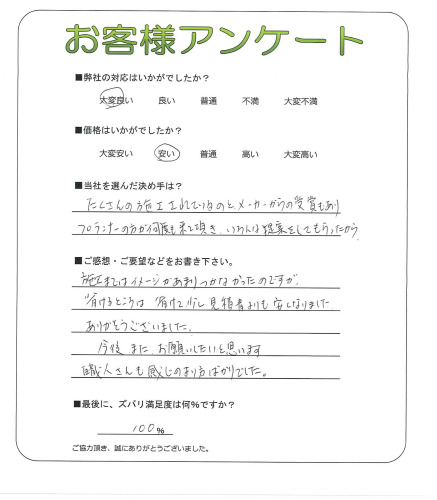 お客様アンケート
■弊社の対応はいかがでしたか？
大変良い 良い 普通 不満 大変不満
■価格はいかがでしたか？
大変安い 安い 普通 高い 大変高い
■当社を選んだ決め手は？
たくさんの施工されているのと、メーカーからの受賞もあり
プランナーの方が何度も来て頂き、いろんな提案をしてもらったから
■ご感想・ご要望などをお書き下さい。
施工まではイメージがあまりつかなかったのですが、
省けるところは省けて少し見積書よりも安くなりました
ありがとうございました。
今後、また、お願いしたいと思います
職人さんも感じのよい方ばかりでした。
■最後に、ズバリ満足度は何％ですか？
100％
ご協力頂き、誠にありがとうございました。